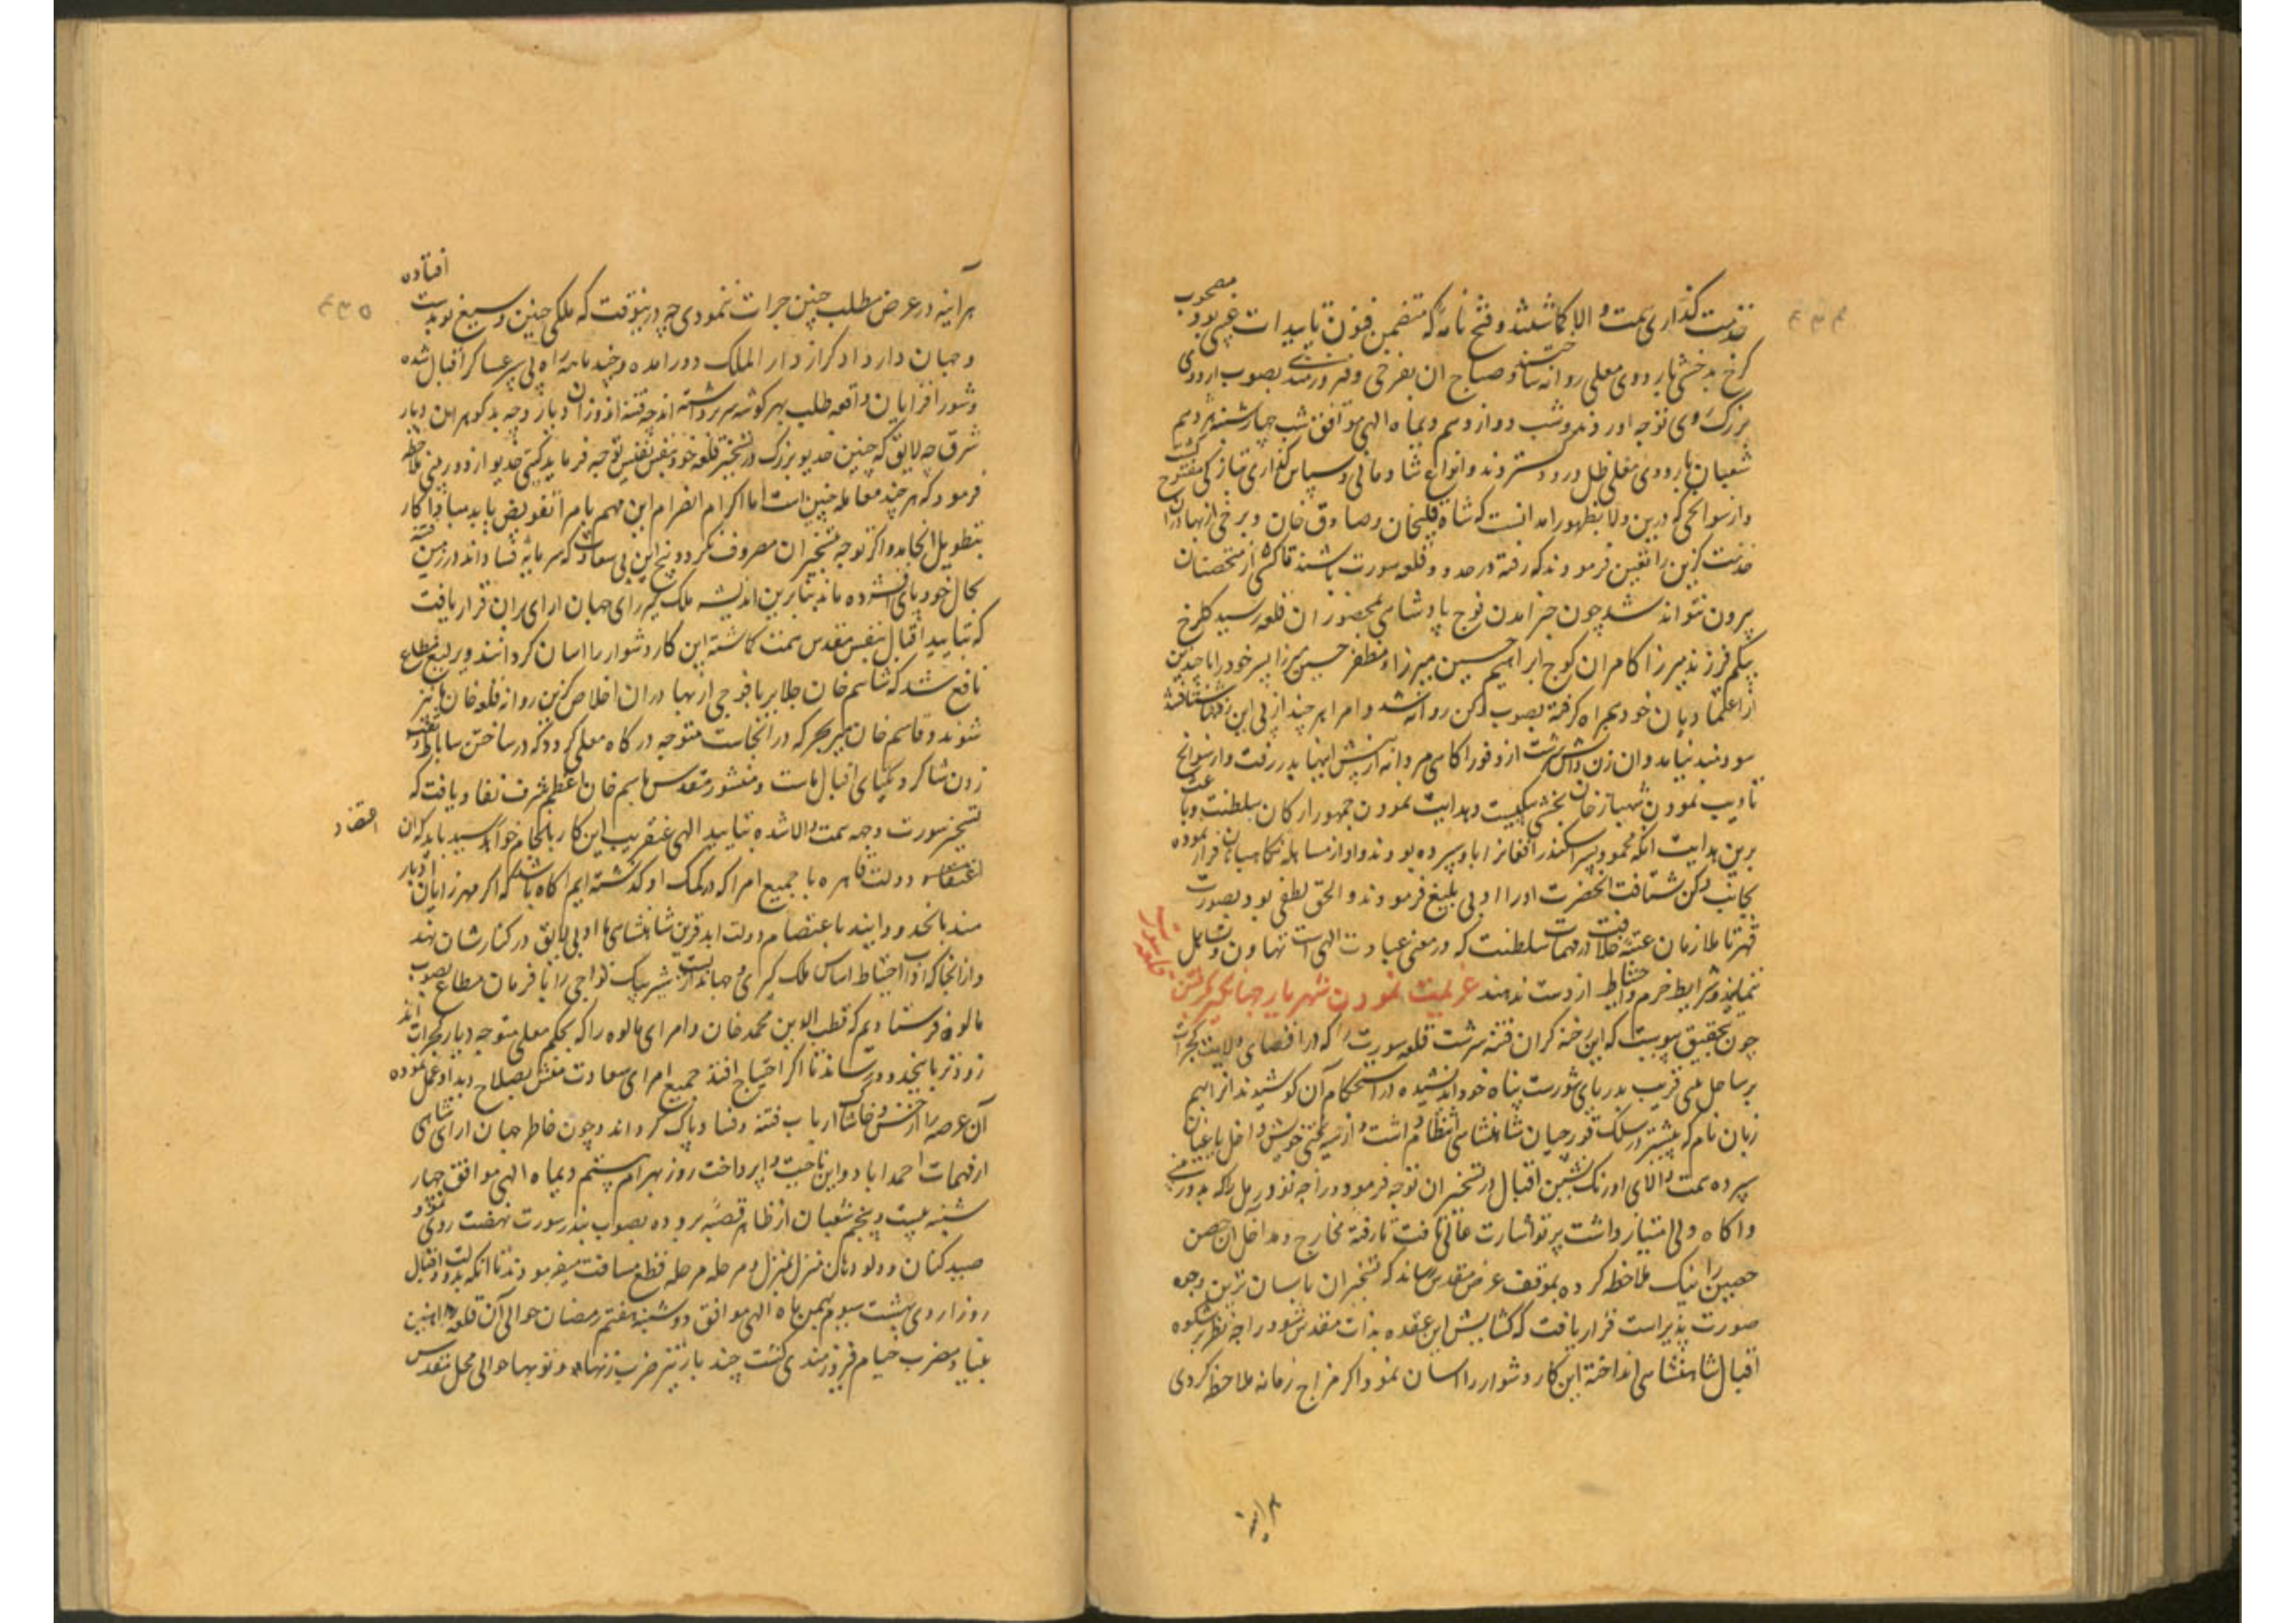 ۴۳۴
خدمت گذاری همت والا گماشتند و فتح نامه که متضمن فنون تاییدات غیبی بود مصحوب
کرخ بدخشی باردوی معلی روانه ساختند و صباح ان بفرخی و فیروزمندی بصوب اردوی
بزرگ روی توجه اوردند و شب دوازدهم دیماه الهی موافق شب چهارشنبه هژدهم
شعبان باردوی معلی ظل ورود گستردند و انواع شادمانی و سپاس گذاری تازگی
و از سوانحی که درین ولا بظهور امد انست که شاه قلیخان و صادق خان و برخی از بهادران
خدمت گزین را تعین فرمودند که رفته در حدود قلعه سورت باشند تا کسی از متحصنان
برون نتواند شد چون خبر امدن فوج پادشاهی بمحضوران قلعه رسید گلرخ
بیگم فرزند میرزا کامران کوچ ابراهیم حسین میرزا و مظفر حسین میرزا پسر خود را با چندین
از اعتمادیان خود همراه گرفته بصوب دکن روانه شد و امرا هر چند از پی این رفتها شتافتند
سودمند نیامد و ان زن از وفور اکاهی مردانه از پیش اینها بدر رفت و از سوانح
تادیب نمودن شهباز خان بخشی بیگیست و هدایت نمودن جمهور ارکان سلطنت و باعث
برین هدایت انکه محمود پسر اسکندر افغانرا باو سپرده بودند و او از مساهله نگاهبانان فرار نموده
بجانب دکن شتافت انحضرت او را ادبی بلیغ فرمودند و الحق لطفی بود بصورت
قهر تا ملازمان عتبه خلافت در مهمات سلطنت که در معنی عبادت الهی است تهاون و تساهل
ننمایند و شرایط حزم و احتیاط از دست ندهند عزیمت نمودن شهریار جهانگیر بگرفتن
قلعه سورت
چون بتحقیق پیوست که این رخنه گران فتنه سرشت قلعه سورت را که در اقصای ولایت گجرات
بر ساحل نهری قریب بدریای شورست پناه خود اندیشیده در استحکام آن کوشیدند از ابهم
زبان نام که پیشتر در سلک قورچیان شاهنشاهی انتظام داشت و از سیه بختی خویش داخل باغیان
سپرده همت والای اورنگ نشین اقبال در تسخیر ان توجه فرمود و راجه تودرمل را که بدوربینی
و اکاه دلی امتیاز داشت پرتو اشارت عالی تافت تا رفته مخارج و مداخل ان حصن
حصین را نیک ملاحظه کرده بموقف عرض مقدس رساند که تسخیر ان باسان ترین وجه
صورت پذیر است قرار یافت که گشایش این عقده بذات مقدس شود راجه نظر بر شکوه
اقبال شاهنشاهی انداخته این کار دشوار را اسان نمود اگر مزاج زمانه ملاحظه کردی
هراینه
۴۳۵
هراینه در عرض مطلب چنین جرات ننمودی چه درینوقت که ملکی چنین وسیع نوبدست افتاده
و جهان دار دادگر از دار الملک دور امده و چند ماهه راه پی سپر عساکر اقبال شده
و شور افزایان واقعه طلب بهر گوشه سر برداشته اند چه فتنه اندوزان دیار و چه بدگوهر این دیار
شرق چه لایق که چنین خدیو بزرگ در تسخیر قلعه خود بنفس نفیس توجه فرماید گیتی خدیو از دوربینی ملاحظه
فرمود که هر چند معامله چنین است اما اگر ام انصرام این مهم بامرا تفویض یابد مبادا کار
بتطویل انجامد و اگر توجه بتسخیر ان مصروف نگردد و بیخ این بی سعادت که سرمایه فساد اند در زمین فتنه
بحال خود پای افشرده ماند بنابرین اندیشه ملک گیر رای جهان ارای بران قرار یافت
که بتایید اقبال بنفس مقدس همت گماشته این کار دشوار را اسان گردانند و یرلیغ مطاع
نافع شد که شاهم خان جلایر با فوجی از بهادران اخلاص گزین روانه قلعه جانپانیر
شوند و قاسم خان میر بحر که در انجاست متوجه درگاه معلی گردد که در ساختن ساباط و نقب
زدن شاگرد یکتای اقبال ماست و منشور مقدس باسم خان اعظم شرف نفاذ یافت که
تسخیر سورت وجهه همت والا شده بتایید الهی عنقریب این کار بانجام خواهد رسید باید که ان
اعتضاد
اعتضاد دولت قاهره با جمیع امرا که در کمک او گذاشته ایم اکاه باشد که اگر میرزایان ادبار
مند بانحدود ایند باعتصام دولت ابد قرین شاهنشاهی ادبی لایق در کنارشان نهند
و از انجا که داب احتیاط اساس ملک گیری و جهاندار یست شیر بیک تواچی را با فرمان مطاع بصوب
مالوه فرستادیم که قطب الدین محمد خان و امرای مالوه را که بحکم معلی متوجه دیار گجرات اند
زودتر بانحدود رساند تا اگر احتیاج افتد جمیع امرای سعادت منش بصلاح دید او عمل نموده
آن عرصه را از خس و خاشاک ارباب فتنه و فساد پاک گرداند و چون خاطر جهان ارای شاهی
از مهمات احمداباد و این ناحیت وا پرداخت روز بهرام بیستم دیماه الهی موافق چهار
شنبه بیست و پنجم شعبان از ظاهر قصبه بروده بصوب بندر سورت نهضت روی نمود و
صید کنان و دولودهان منزل بمنزل و مرحله مرحله قطع مسافت میفرمودند تا انکه بدولت و اقبال
روز اردی بهشت سیوم بهمن ماه الهی موافق دوشنبه هفتم رمضان حوالی آن قلعه اهنین
بنیاد مضرب خیام فیروزمندی گشت چند بار تیر ضرب زنها و توبها حوالی محل مقدس